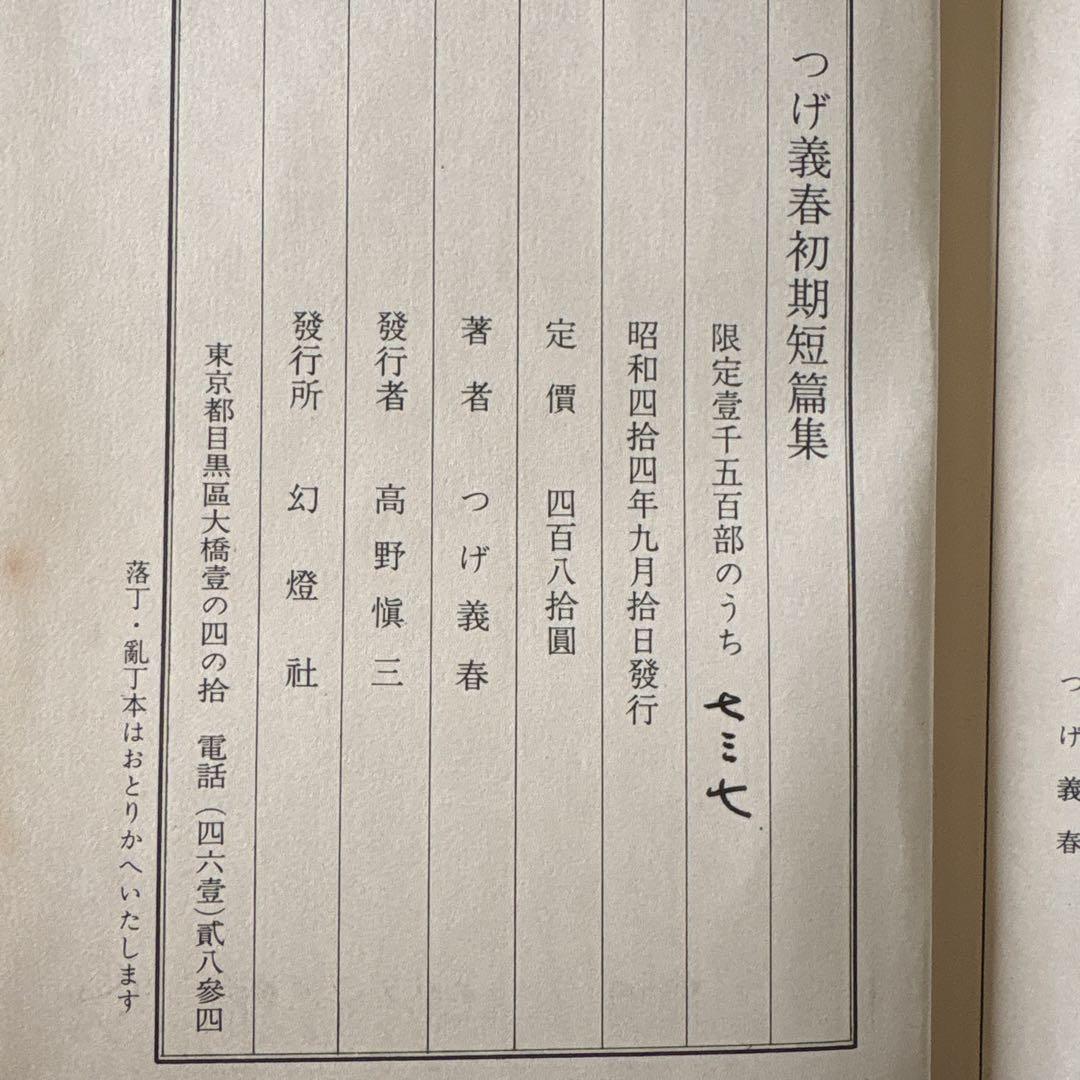 つげ義春
つげ義春初期短篇集
限定壹千五百部のうち 七三七
昭和四拾四年九月拾日發行
定價 四百八拾圓
著者 つげ義春
發行者 高野愼三
發行所 幻燈社
東京都目黒區大橋壹の四の拾 電話(四六壹)貳八參四
落丁・亂丁本はおとりかへいたします